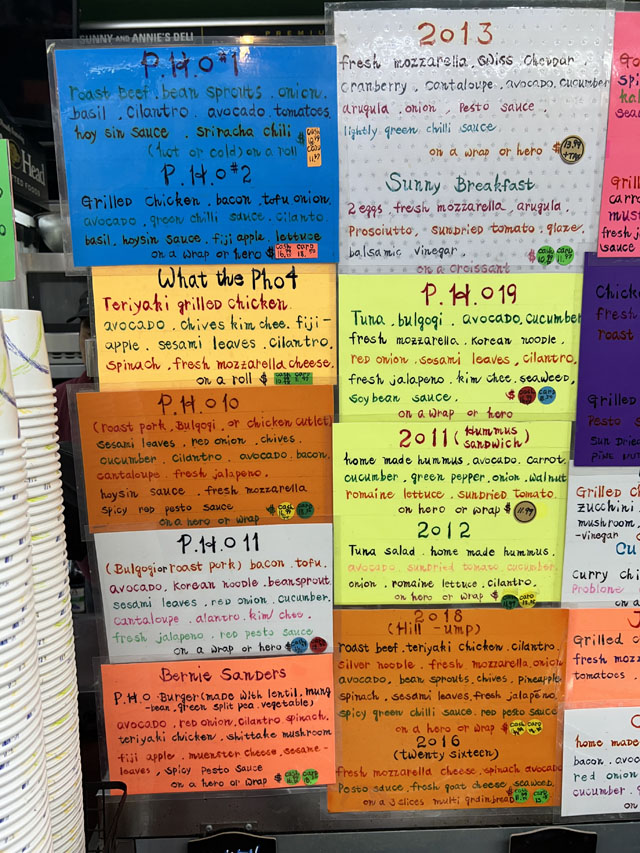 SUNNY AND ANNIE'S DELI
PREMIUM
Head
P.H.O #1
roast beef. bean sprouts . onion.
basil . Cilantro . avocado. tomatoes.
hoy sin sauce . sriracha chili $
cash
card
11.97
(hot or cold) on a roll
P.H.O #2
Grilled chicken. bacon. tofu onion.
avocado . green chilli sauce. cilanto.
basil. hoysin sauce . fiji apple . lettuce
on a wrap or hero $ cash card
What the Pho4
Teriyaki grilled chicken
avocado . chives kim chee. fiji-
apple . sesami leaves . cilantro.
spinach . fresh mozzarella cheese.
on a roll $ cash card
P.H.O 10
(roast pork. Bulgogi, or chicken cutlet)
sesami leaves . red onion . chives.
cucumber . cilantro . avocado. bacon.
cantaloupe . fresh jalapeno.
hoysin sauce . fresh mozzarella
spicy red pesto sauce $
on a hero or wrap
P.H.O 11
(Bulgogi or roast pork) bacon . tofu.
avocado. Korean noodle . beansprout
sesami leaves . red onion . cucumber.
cantaloupe . alantro. kim chee.
fresh jalapeno . red pesto sauce
on a wrap or hero $
Bernie Sanders
P.H.O - Burger (made with lentil, mung
-bean, green split pea, vegetable)
avocado . red onion, cilantro spinach.
teriyaki chicken . shittake mushroom
fiji apple . muenster cheese, sesame-
leaves , spicy Pesto Sauce
on a hero or wrap $ cash card
2013
fresh mozzarella . swiss cheddar.
cranberry . cantaloupe. avocado. cucumber
arugula . onion . Pesto sauce .
lightly green chilli sauce .
on a wrap or hero $ 13.99 +TAX
Sunny Breakfast
2 eggs . fresh mozzarella, arugula.
Prosciutto, sundried tomato . glaze.
balsamic vinegar. $ cash card
on a croissant
P.H.O 19
Tuna . bulgogi . avocado. cucumber
fresh mozzarella . Korean noodle .
red onion . sesami leaves , cilantro.
fresh jalapeno . kim chee. seaweed.
soy bean sauce . $
on a wrap or hero
2011 (Hummus
sandwich)
home made hummus. avocado. carrot,
cucumber . green pepper. onion . walnut
romaine lettuce . sundried tomato.
on hero or wrap $ 11.99
2012
Tuna salad . home made hummus.
avocado. sundried tomato. cucumber
onion . romaine lettuce , cilantro.
on hero or wrap $
2018
(Hill -ump)
roast beef . teriyaki chicken . cilantro.
silver noodle . fresh mozzarella. onion
avocado . bean sprouts . chives. pineapple
spinach . sesami leaves, fresh jalapeno.
spicy green chilli sauce . red pesto sauce
on a hero or wrap $ cash card
2016
(twenty sixteen)
fresh mozzarella cheese . spinach avocado
Pesto sauce . fresh goat cheese seaweed,
on a 3 slices multi grain bread $ cash card
Grill
carro
mus
fresh
sauce
Chick
fresh
roast
Grilled
Pesto S
sun Dried
pink nut
Grilled c
zucchini
mushroom.
-vinegar
Cu
Curry chi
Problone
Grilled
fresh mozz
tomatoes .
home made
bacon . avoc
red onion
cucumber . g